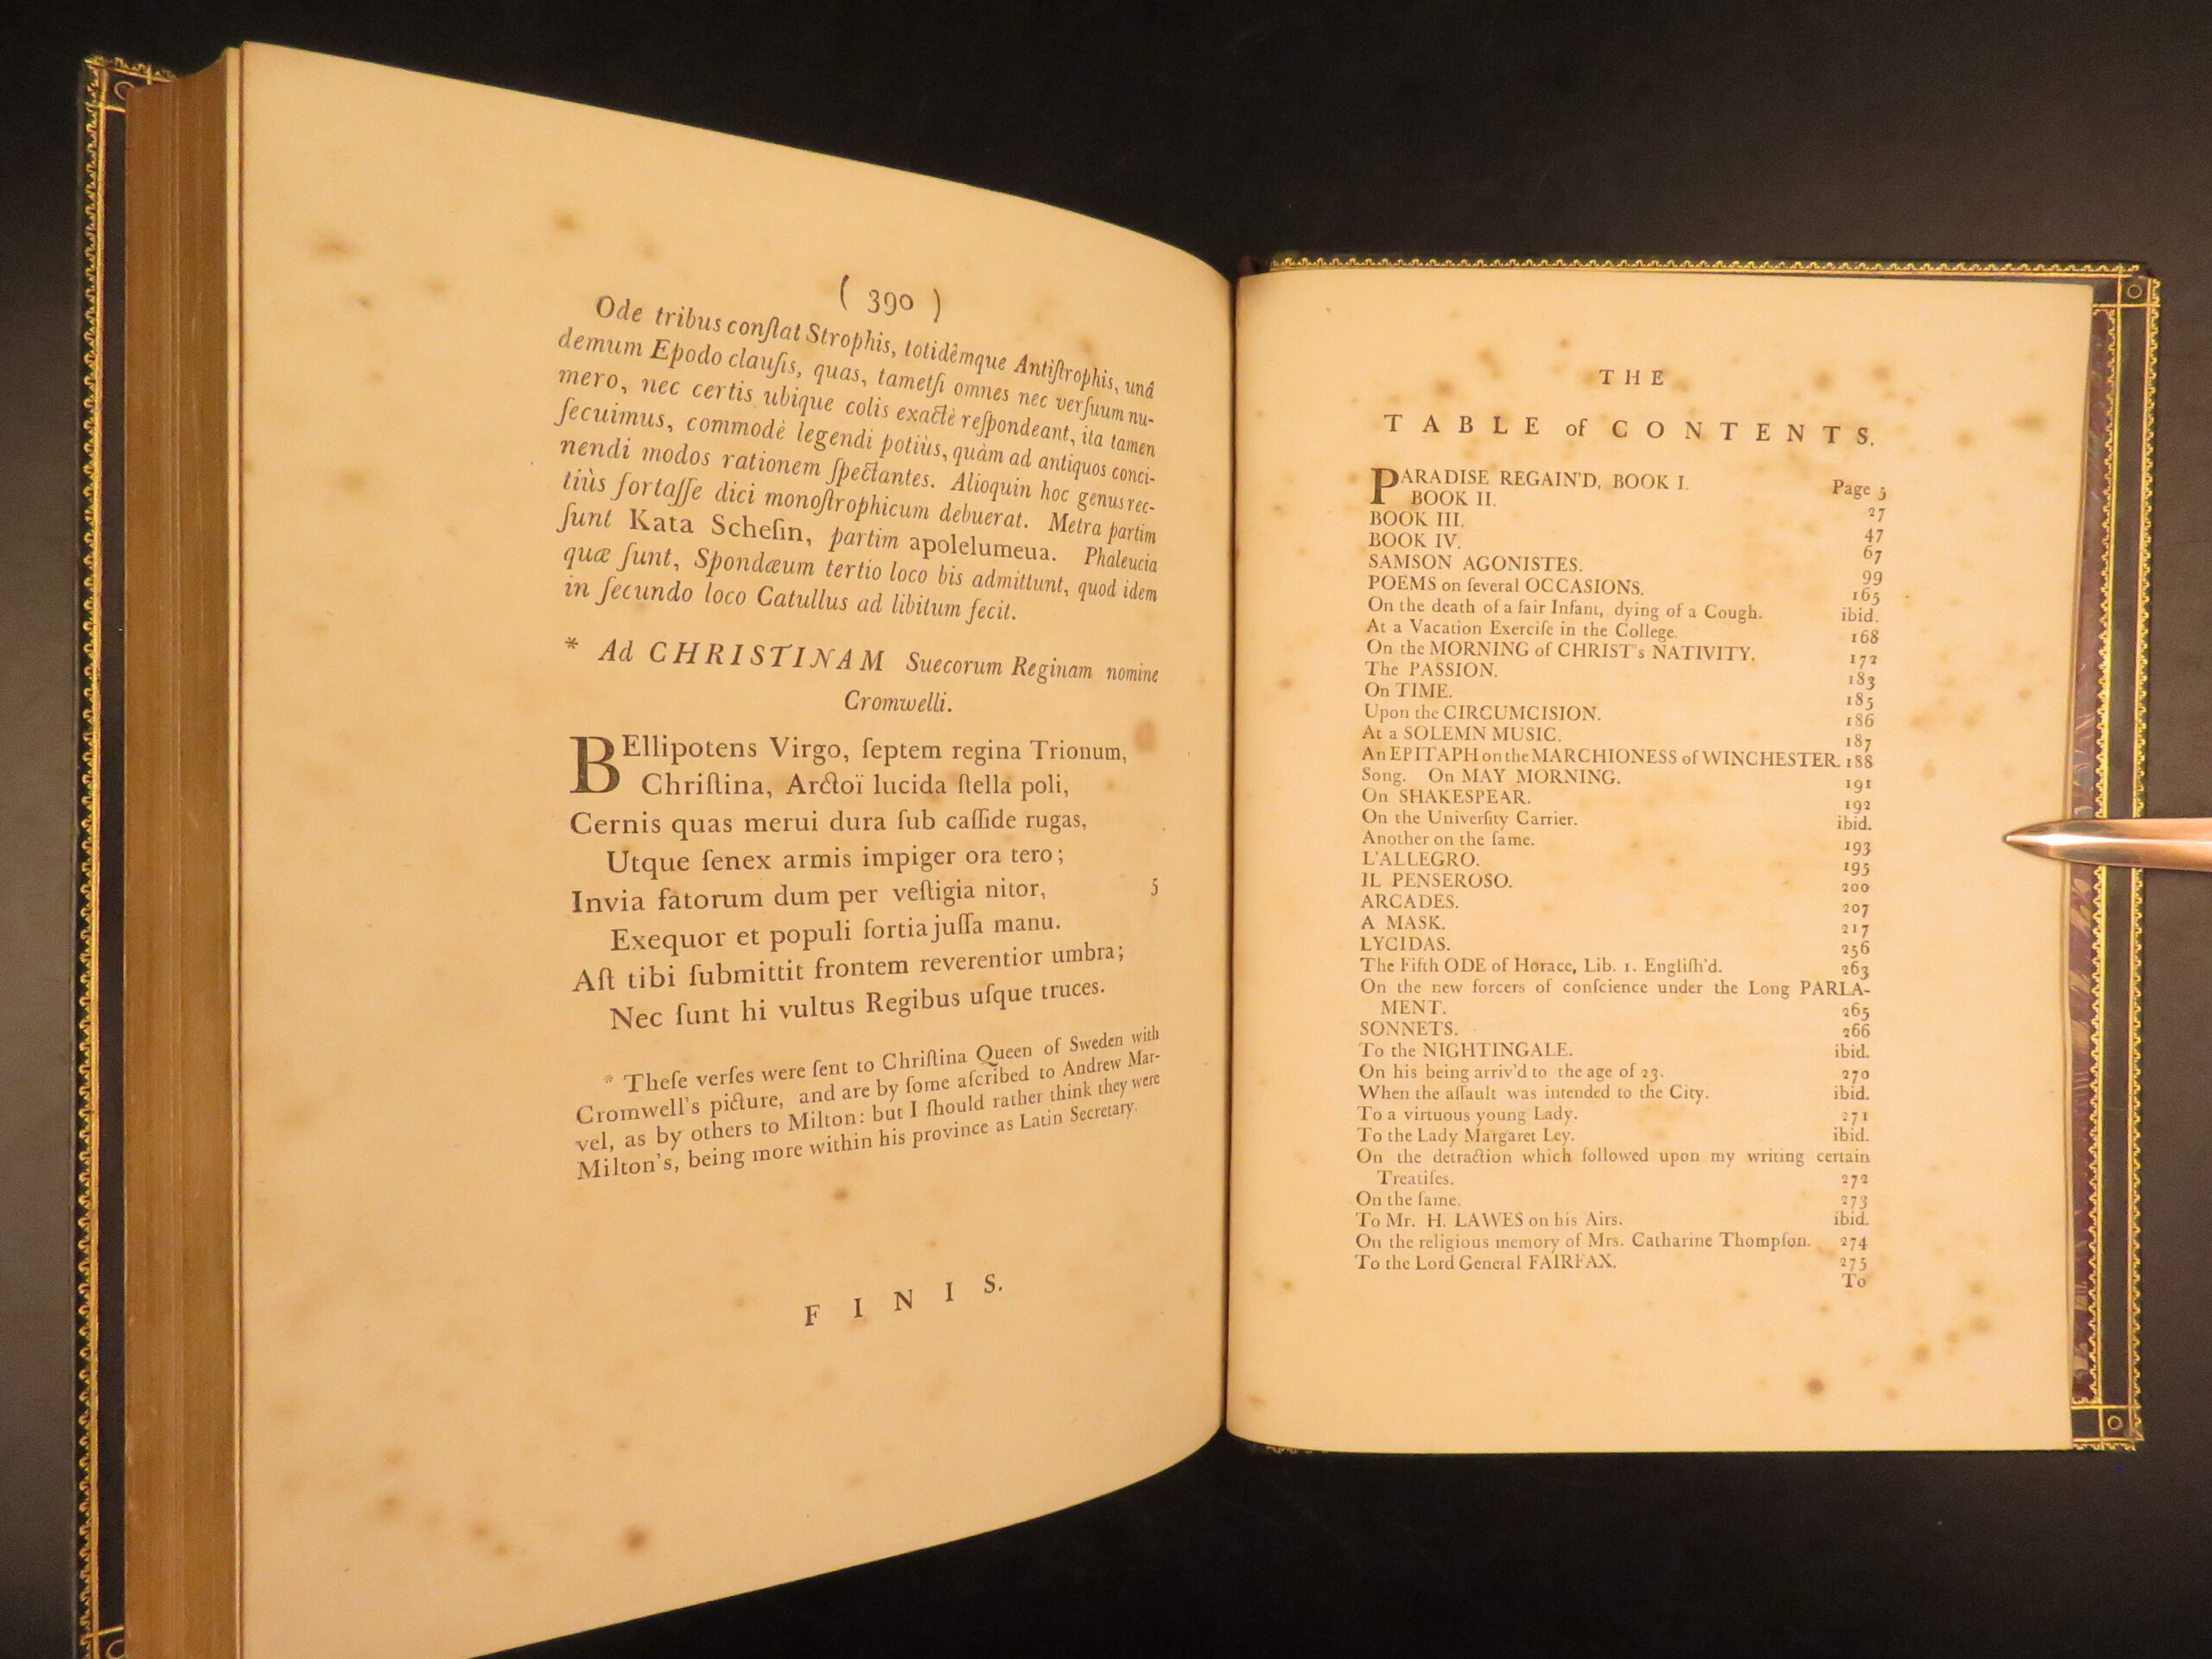 ( 390 )
Ode tribus conſtat Strophis, totidêmque Antiſtrophis, unâ
demum Epodo clauſis, quas, tametſi omnes nec verſuum nu-
mero, nec certis ubique colis exactè reſpondeant, ita tamen
ſecuimus, commodè legendi potiùs, quàm ad antiquos conci-
nendi modos rationem ſpectantes. Alioquin hoc genus rec-
tiùs fortaſſe dici monoſtrophicum debuerat. Metra partim
ſunt Kata Scheſin, partim apolelumeua. Phaleucia
quæ ſunt, Spondæum tertio loco bis admittunt, quod idem
in ſecundo loco Catullus ad libitum fecit.
* Ad CHRISTINAM Suecorum Reginam nomine
Cromwelli.
BEllipotens Virgo, ſeptem regina Trionum,
Chriſtina, Arctoï lucida ſtella poli,
Cernis quas merui dura ſub caſſide rugas,
Utque ſenex armis impiger ora tero;
Invia fatorum dum per veſtigia nitor, 5
Exequor et populi fortia juſſa manu.
Aſt tibi ſubmittit frontem reverentior umbra;
Nec ſunt hi vultus Regibus uſque truces.
* Theſe verſes were ſent to Chriſtina Queen of Sweden with
Cromwell's picture, and are by ſome aſcribed to Andrew Mar-
vel, as by others to Milton: but I ſhould rather think they were
Milton's, being more within his province as Latin Secretary.
F I N I S.
THE
TABLE of CONTENTS.
PARADISE REGAIN'D, BOOK I. Page 5
BOOK II. 27
BOOK III. 47
BOOK IV. 67
SAMSON AGONISTES. 99
POEMS on ſeveral OCCASIONS. 165
On the death of a fair Infant, dying of a Cough. ibid.
At a Vacation Exerciſe in the College. 168
On the MORNING of CHRIST's NATIVITY. 172
The PASSION. 183
On TIME. 185
Upon the CIRCUMCISION. 186
At a SOLEMN MUSIC. 187
An EPITAPH on the MARCHIONESS of WINCHESTER. 188
Song. On MAY MORNING. 191
On SHAKESPEAR. 192
On the Univerſity Carrier. ibid.
Another on the ſame. 193
L'ALLEGRO. 195
IL PENSEROSO. 200
ARCADES. 207
A MASK. 217
LYCIDAS. 256
The Fifth ODE of Horace, Lib. 1. Engliſh'd. 263
On the new forcers of conſcience under the Long PARLA-
MENT. 265
SONNETS. 266
To the NIGHTINGALE. ibid.
On his being arriv'd to the age of 23. 270
When the aſſault was intended to the City. ibid.
To a virtuous young Lady. 271
To the Lady Margaret Ley. ibid.
On the detraction which followed upon my writing certain
Treatiſes. 272
On the ſame. 273
To Mr. H. LAWES on his Airs. ibid.
On the religious memory of Mrs. Catharine Thompſon. 274
To the Lord General FAIRFAX. 275
To